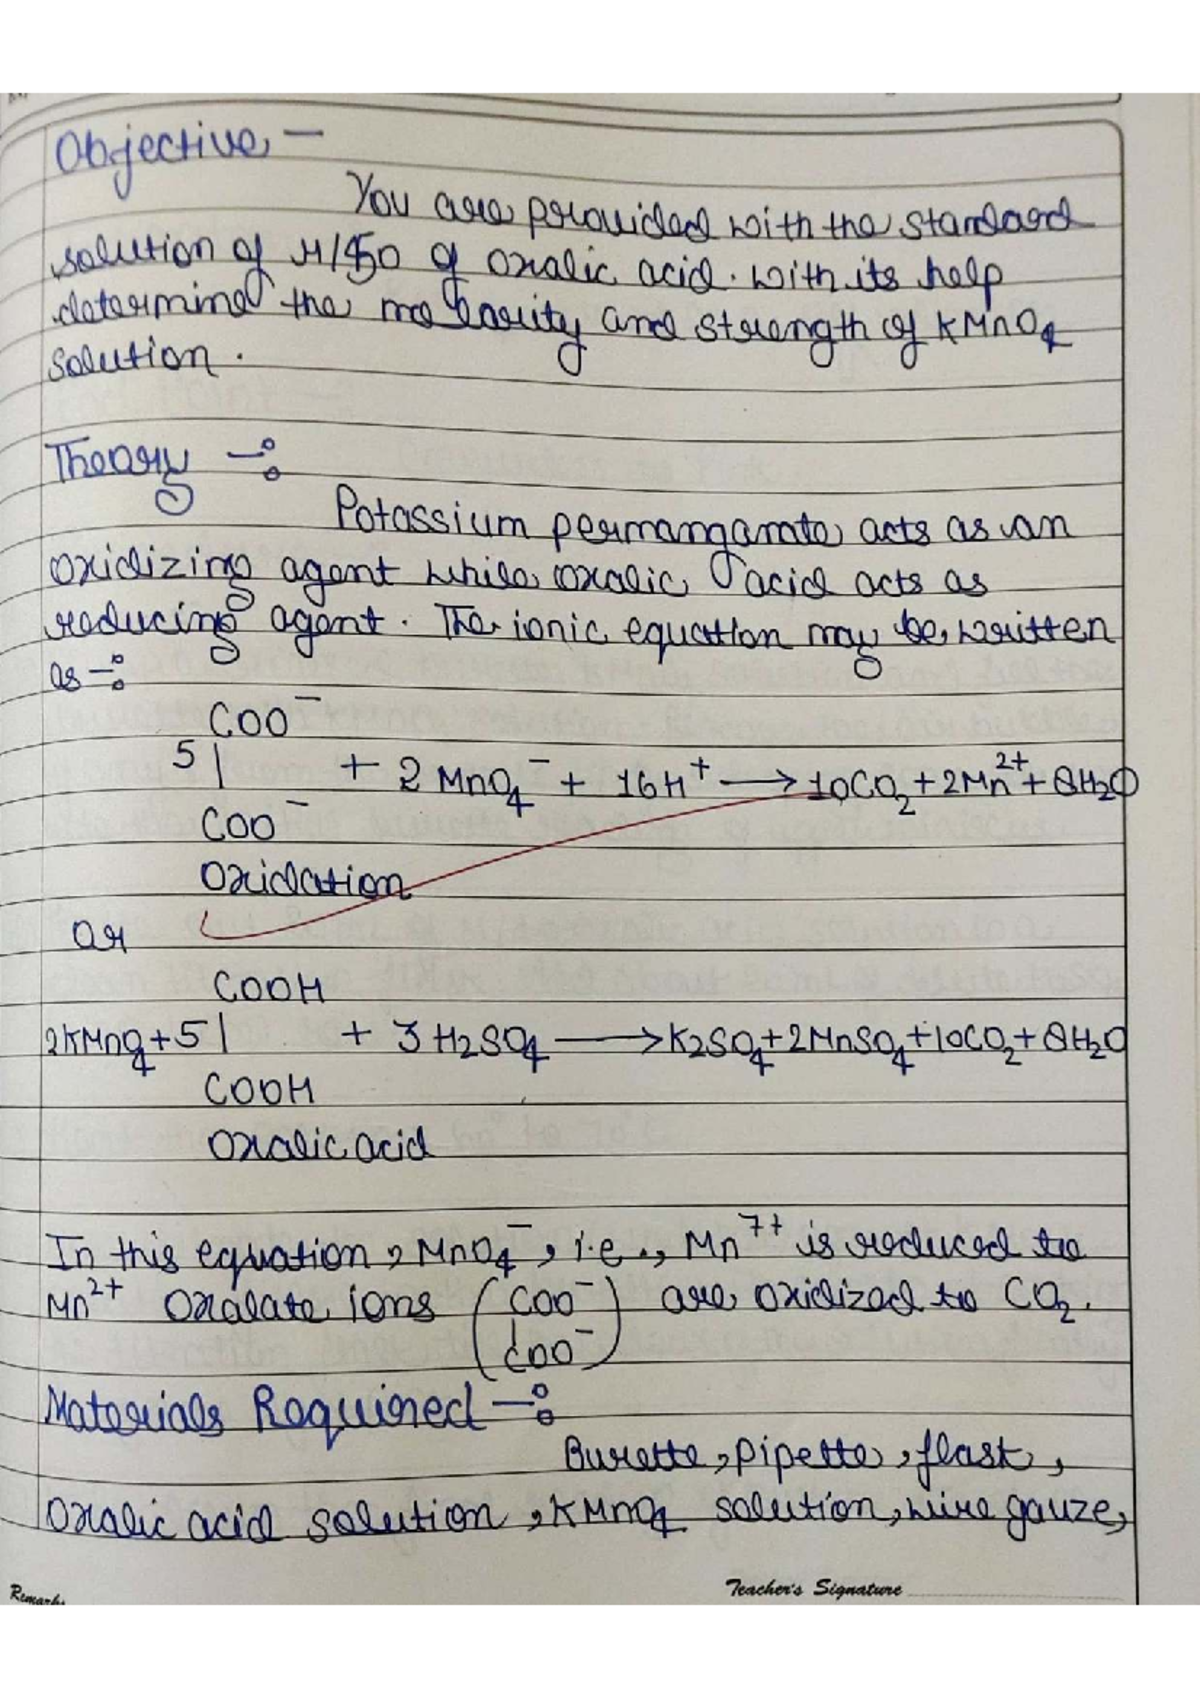 Objective –
You are provided with the standard
solution of M/50 of oxalic acid. with its help
determine the molarity and strength of KMnO4
solution.
Theory –:
Potassium permanganate acts as an
oxidizing agent while oxalic acid acts as
reducing agent. The ionic equation may be written
as –:
COO⁻
5 | + 2 MnO4⁻ + 16H⁺ ⟶ 10CO2 + 2Mn²⁺ + 8H2O
COO⁻
Oxidation
or
COOH
2KMnO4 + 5 | + 3 H2SO4 ⟶ K2SO4 + 2MnSO4 + 10CO2 + 8H2O
COOH
Oxalic acid
In this equation, MnO4⁻, i.e., Mn⁷⁺ is reduced to
Mn²⁺ oxalate ions (COO⁻ are oxidized to CO2.
COO⁻)
Materials Required –:
Burette, pipette, flask,
Oxalic acid solution, KMnO4 solution, wire gauze,
Remark
Teacher's Signature